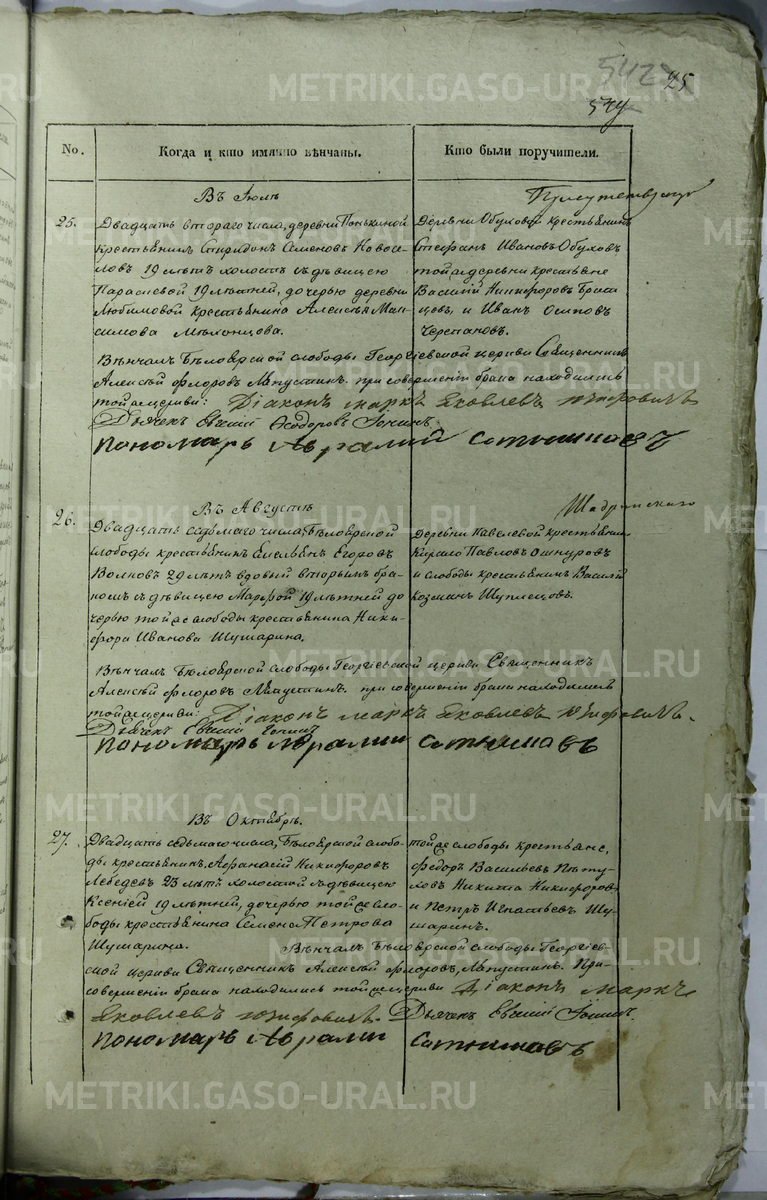 METRIKI.GASO-URAL.RU
542
25
No.
Когда и кто имянно вѣнчаны.
Кто были поручители.
Въ Іюлѣ
25.
Двадцать втораго числа, деревни Понькиной
крестьянинъ Спиридонъ Семеновъ Новосе-
ловъ 19 лѣтъ холостъ съ дѣвицею
19 лѣтней, дочерью деревни
Любимовой крестьянина Алексѣя Мак-
симова
Деревни Обуховой крестьянинъ
Стефанъ Ивановъ Обуховъ
той же деревни крестьяне
Василій Никифоровъ
и Иванъ Осиповъ
Черепановъ.
Вѣнчалъ Бѣлоярской слободы Георгіевской церкви Священникъ
Алексѣй Флоровъ Лапустинъ. при совершеніи брака находились
той же церкви: Діаконъ Маркъ Яковлевъ
Дьячекъ Евсій Ѳеодоровъ
Пономарь Авраамій Сотниковъ
Въ Августѣ
Шадринскаго
26.
Двадцать седьмаго числа, Бѣлоярской
слободы крестьянинъ Емельянъ Егоровъ
Волковъ 29 лѣтъ вдовый вторымъ бра-
комъ съ дѣвицею Марѳой 19 лѣтней до
черью той же слободы крестьянина Ники-
фора Иванова Шушарина.
Деревни крестьянинъ
Кирило Павловъ
и слободы крестьянинъ Василій
Козминъ
Вѣнчалъ Бѣлоярской слободы Георгіевской церкви Священникъ
Алексѣй Флоровъ Лапустинъ. при совершеніи брака находились
той же церкви: Діаконъ Маркъ Яковлевъ
Дьячекъ Евсій
Пономарь Авраамій Сотниковъ
Въ Октябрѣ.
27.
Двадцать седьмаго числа, Бѣлоярской слобо-
ды крестьянинъ, Аѳанасій Никифоровъ
Лебедевъ 23 лѣтъ холостой съ дѣвицею
Ксеніей 19 лѣтней, дочерью той же сло-
боды крестьянина Семена Петрова
Шушарина.
той же слободы крестьяне,
Федоръ Васильевъ Пѣту-
ховъ Никита Никифоровъ
и Петръ Игнатьевъ Шу-
шаринъ.
Вѣнчалъ Бѣлоярской слободы Георгіев-
ской церкви Священникъ Алексѣй Флоровъ Лапустинъ. При
совершеніи брака находились той же церкви Діаконъ Маркъ
Яковлевъ Дьячекъ Евсій
Пономарь Авраамій Сотниковъ